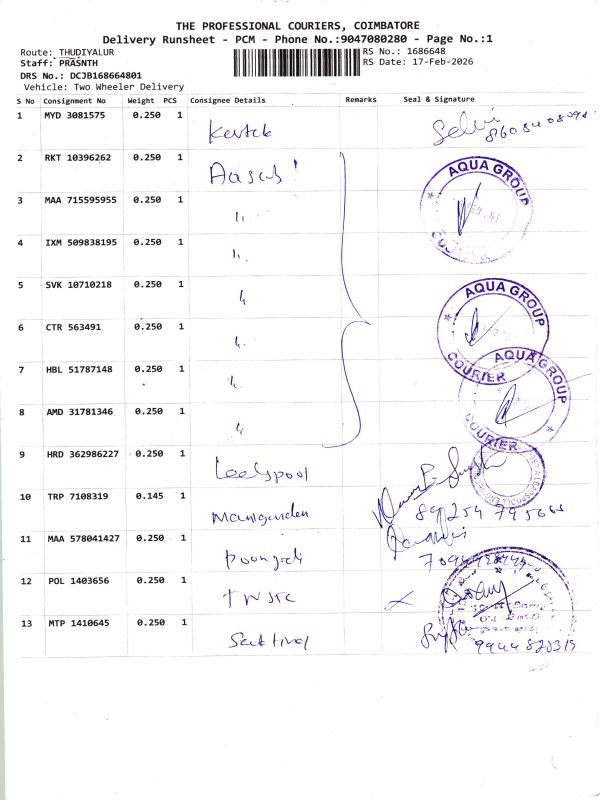 THE PROFESSIONAL COURIERS, COIMBATORE
Delivery Runsheet - PCM - Phone No.:9047080280 - Page No.:1
Route: THUDIYALUR
RS No.: 1686648
Staff: PRASNTH
RS Date: 17-Feb-2026
DRS No.: DCJB168664801
Vehicle: Two Wheeler Delivery
S No Consignment No Weight PCS Consignee Details Remarks Seal & Signature
1 MYD 3081575 0.250 1
Selvi
2 RKT 10396262 0.250 1
AQUA GROUP
3 MAA 715595955 0.250 1 "
4 IXM 509838195 0.250 1 "
5 SVK 10710218 0.250 1 "
AQUA GROUP
COURIER
6 CTR 563491 0.250 1 "
7 HBL 51787148 0.250 1 "
AQUA GROUP
COURIER
8 AMD 31781346 0.250 1 "
9 HRD 362986227 0.250 1
10 TRP 7108319 0.145 1 Manigandan
11 MAA 578041427 0.250 1
12 POL 1403656 0.250 1
13 MTP 1410645 0.250 1 Sakthivel
9944828319